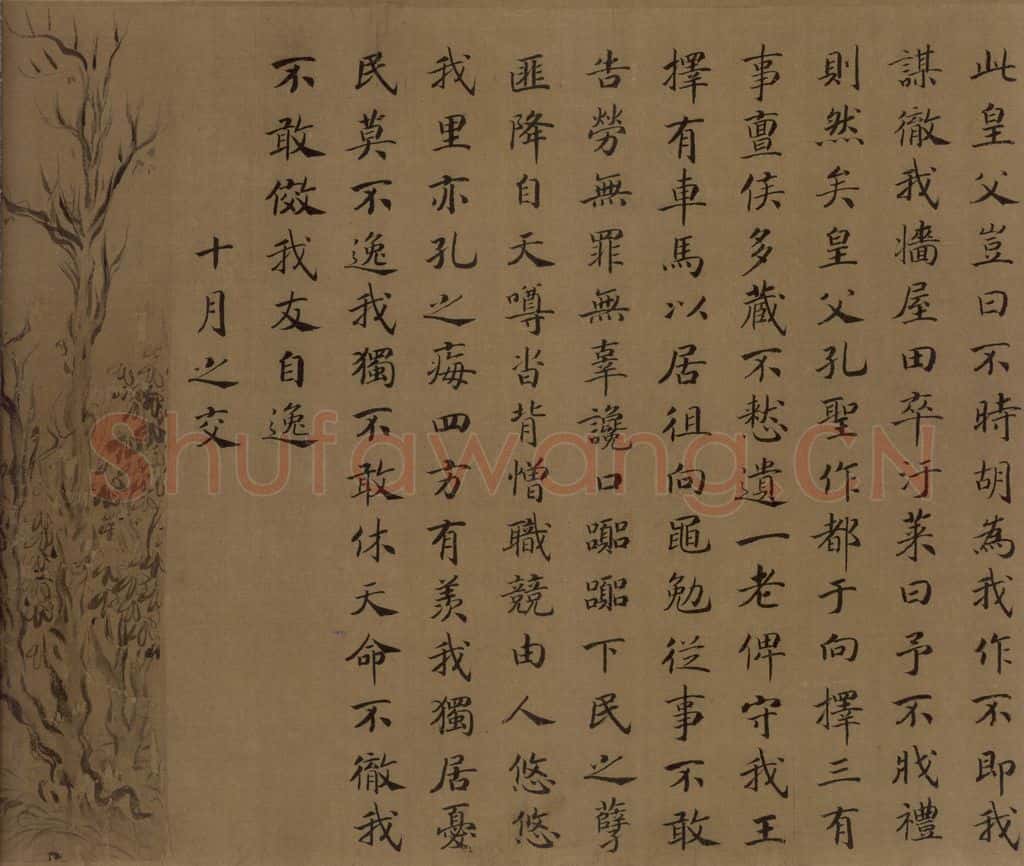 此皇父豈曰不時胡為我作不即我
謀徹我牆屋田卒汙萊曰予不戕禮
則然矣皇父孔聖作都于向擇三有
事亶侯多藏不憖遺一老俾守我王
擇有車馬以居徂向黽勉從事不敢
告勞無罪無辜讒口下民之孽
匪降自天噂沓背憎職競由人悠悠
我里亦孔之痗四方有羨我獨居憂
民莫不逸我獨不敢休天命不徹我
不敢傚我友自逸
十月之交
Shufawang.CN